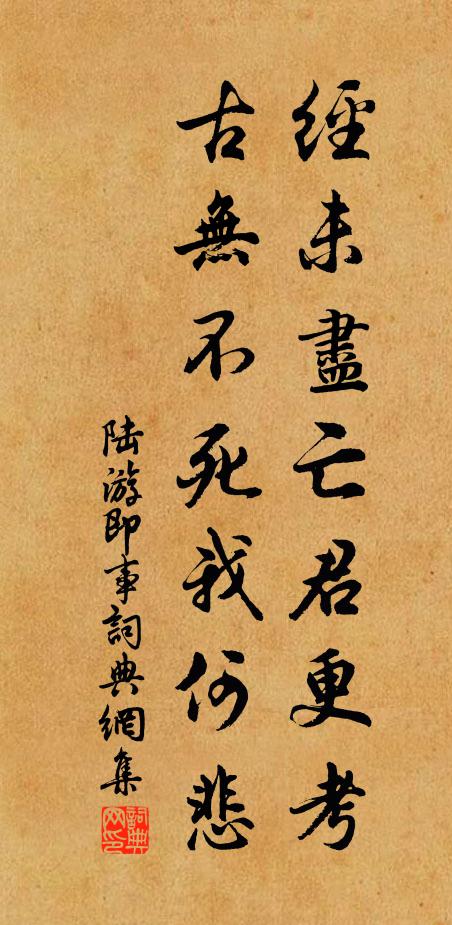 經未盡亡君更考
古無不死我何悲
陸游即事詞典網集
詞典
网印